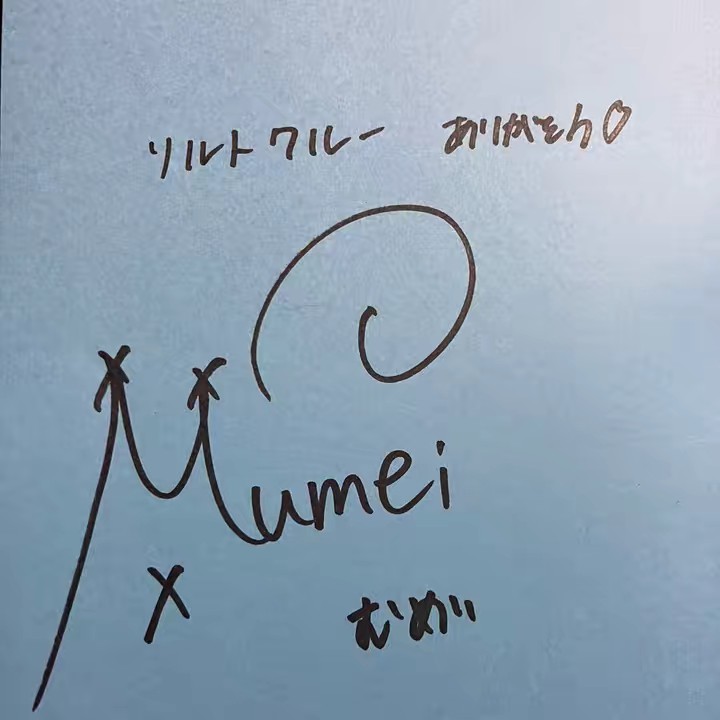 ソルトクルー ありがとう♡
Mumei
x
むめい